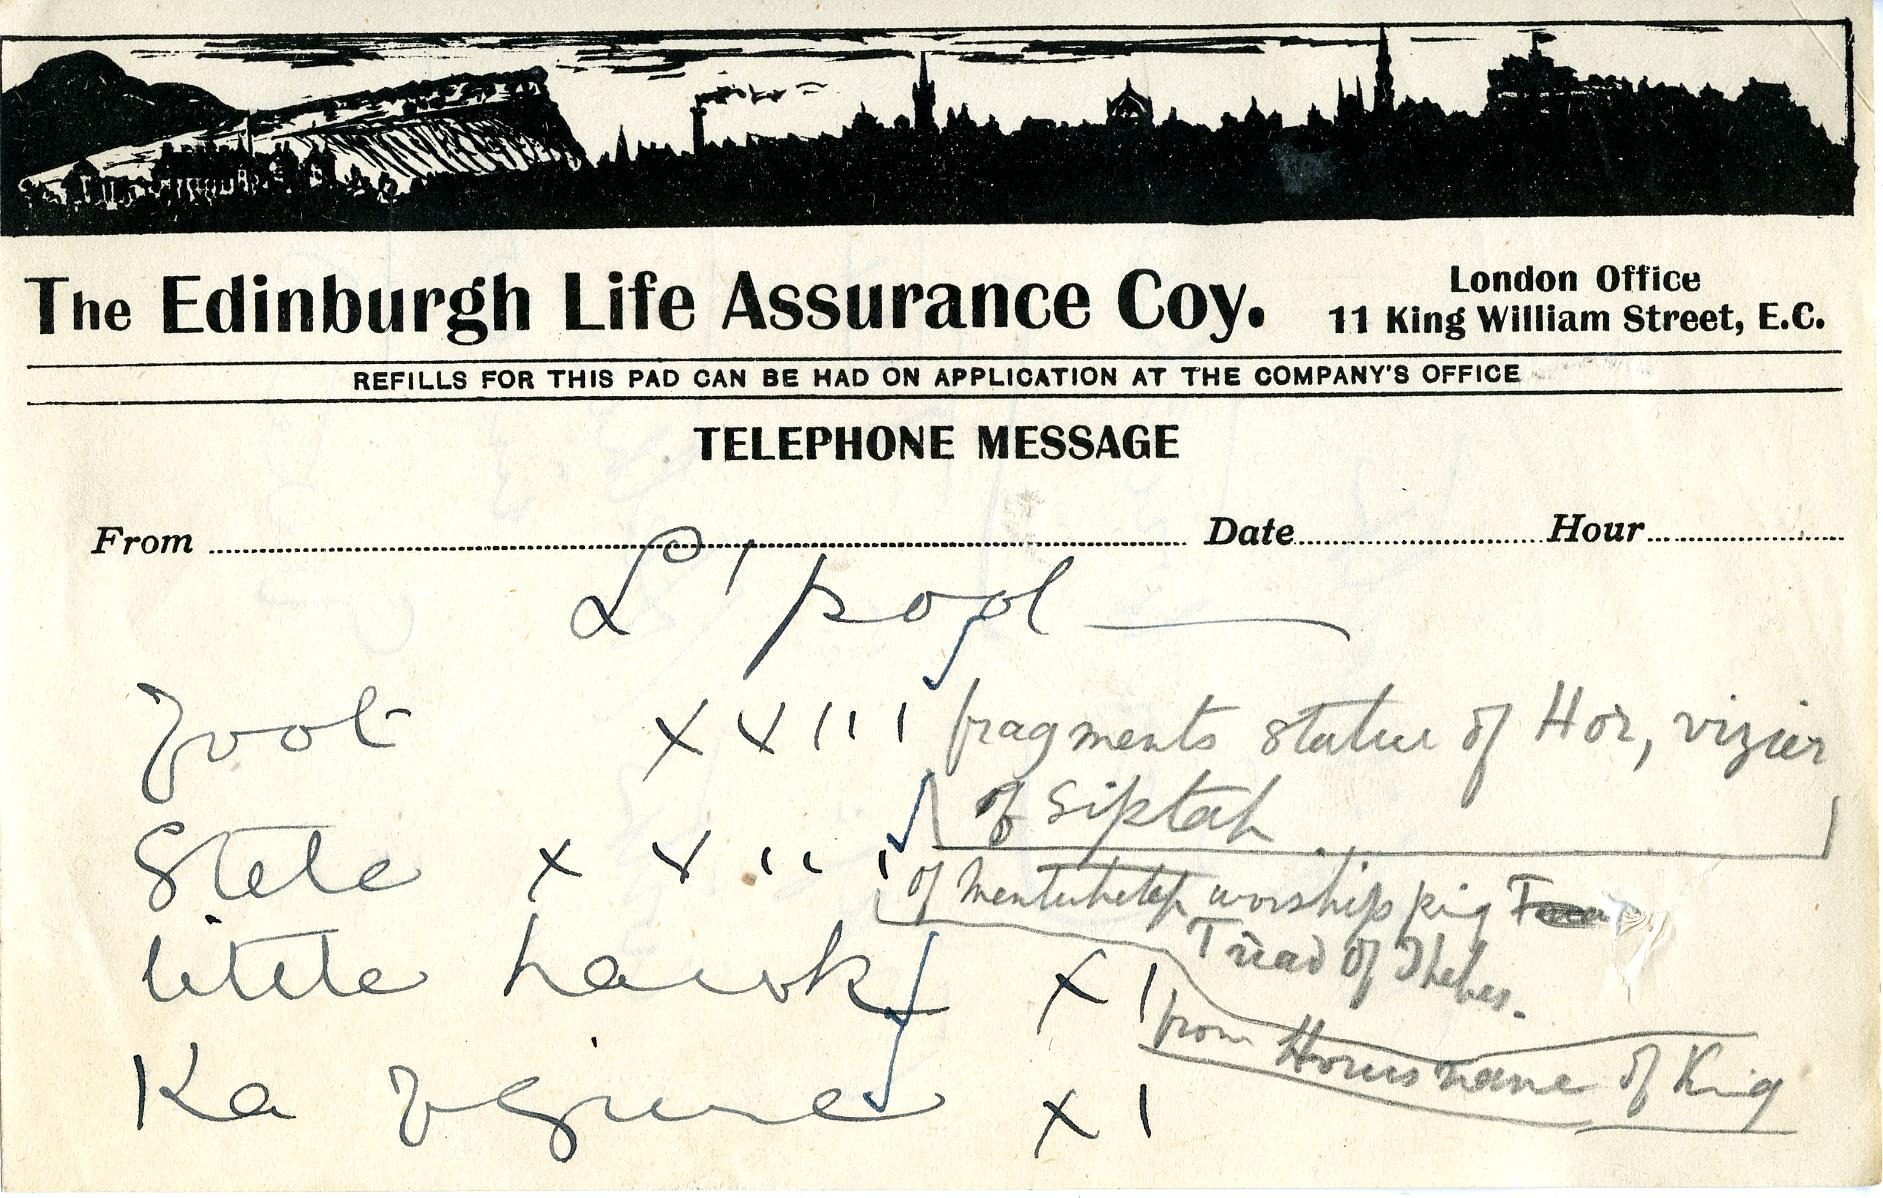 The Edinburgh Life Assurance Coy.
London Office
11 King William Street, E.C.
REFILLS FOR THIS PAD CAN BE HAD ON APPLICATION AT THE COMPANY'S OFFICE
TELEPHONE MESSAGE
From Date Hour
L'pool
Foot x x I I I fragments statue of Hor, vizier
of Siptah
Stele x x I I I of Mentuhetep worshipping
Triad of Thebes.
little hawk x I from Horus name of King
Ka figure x I